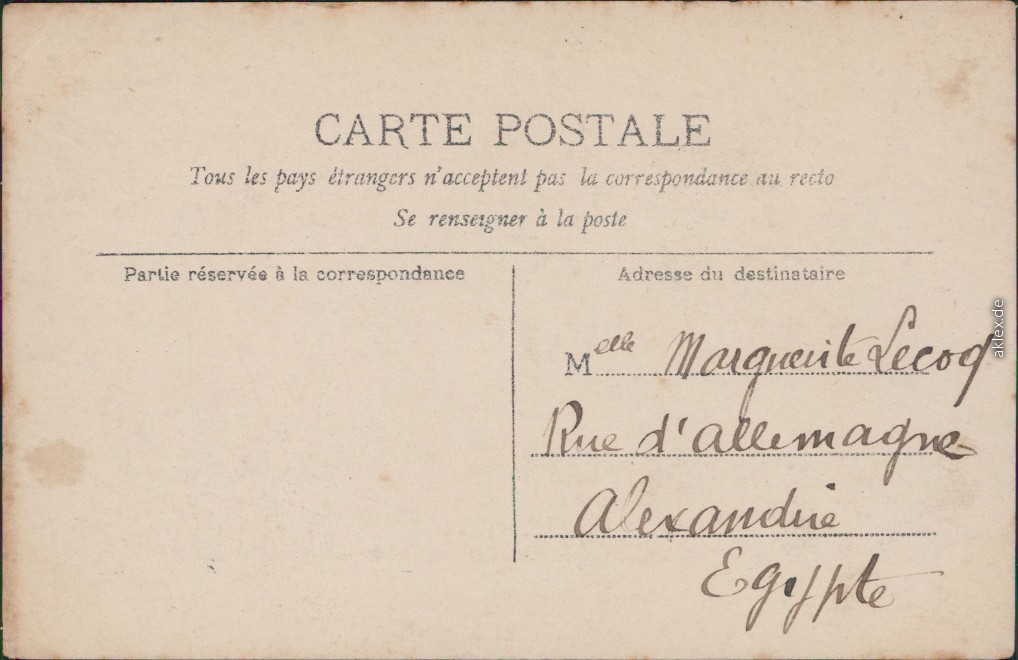 CARTE POSTALE
Tous les pays étrangers n'acceptent pas la correspondance au recto
Se renseigner à la poste
Partie réservée à la correspondance
Adresse du destinataire
Melle Marguerite Lecoq
Rue d'allemagne
Alexandrie
Egypte
aklex.de